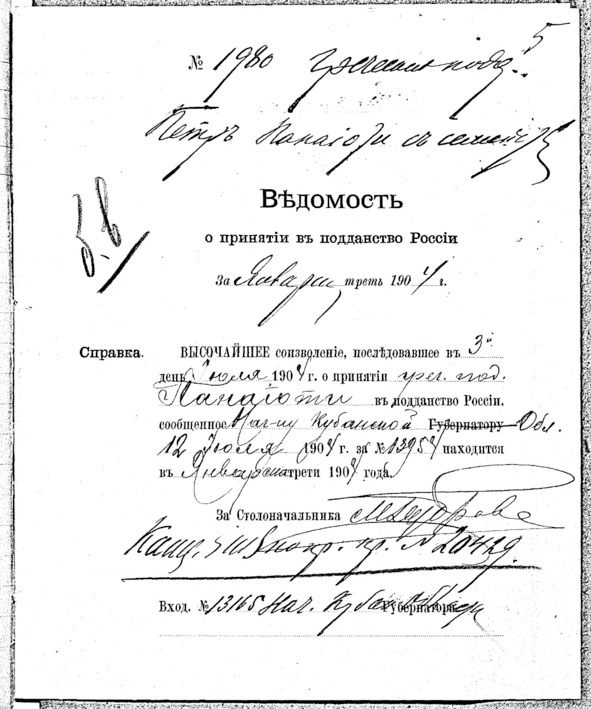 № 1980 Греческ. подд. 5
Петръ Панаіоти съ семей
Вѣдомость
о принятіи въ подданство Россіи
За Январск. треть 1904 г.
Справка. ВЫСОЧАЙШЕЕ соизволеніе, послѣдовавшее въ 3й
день Іюля 1904 г. о принятіи греч. под.
Панаіоти въ подданство Россіи.
сообщенное Нач-ку Кубанской Губернатору Обл.
12 Іюля 1904 г. за № 13954 находится
въ Январск. трети 1904 года.
За Столоначальника
№ 20429.
Вход. № 13165 Нач. Кубан. Губернатора